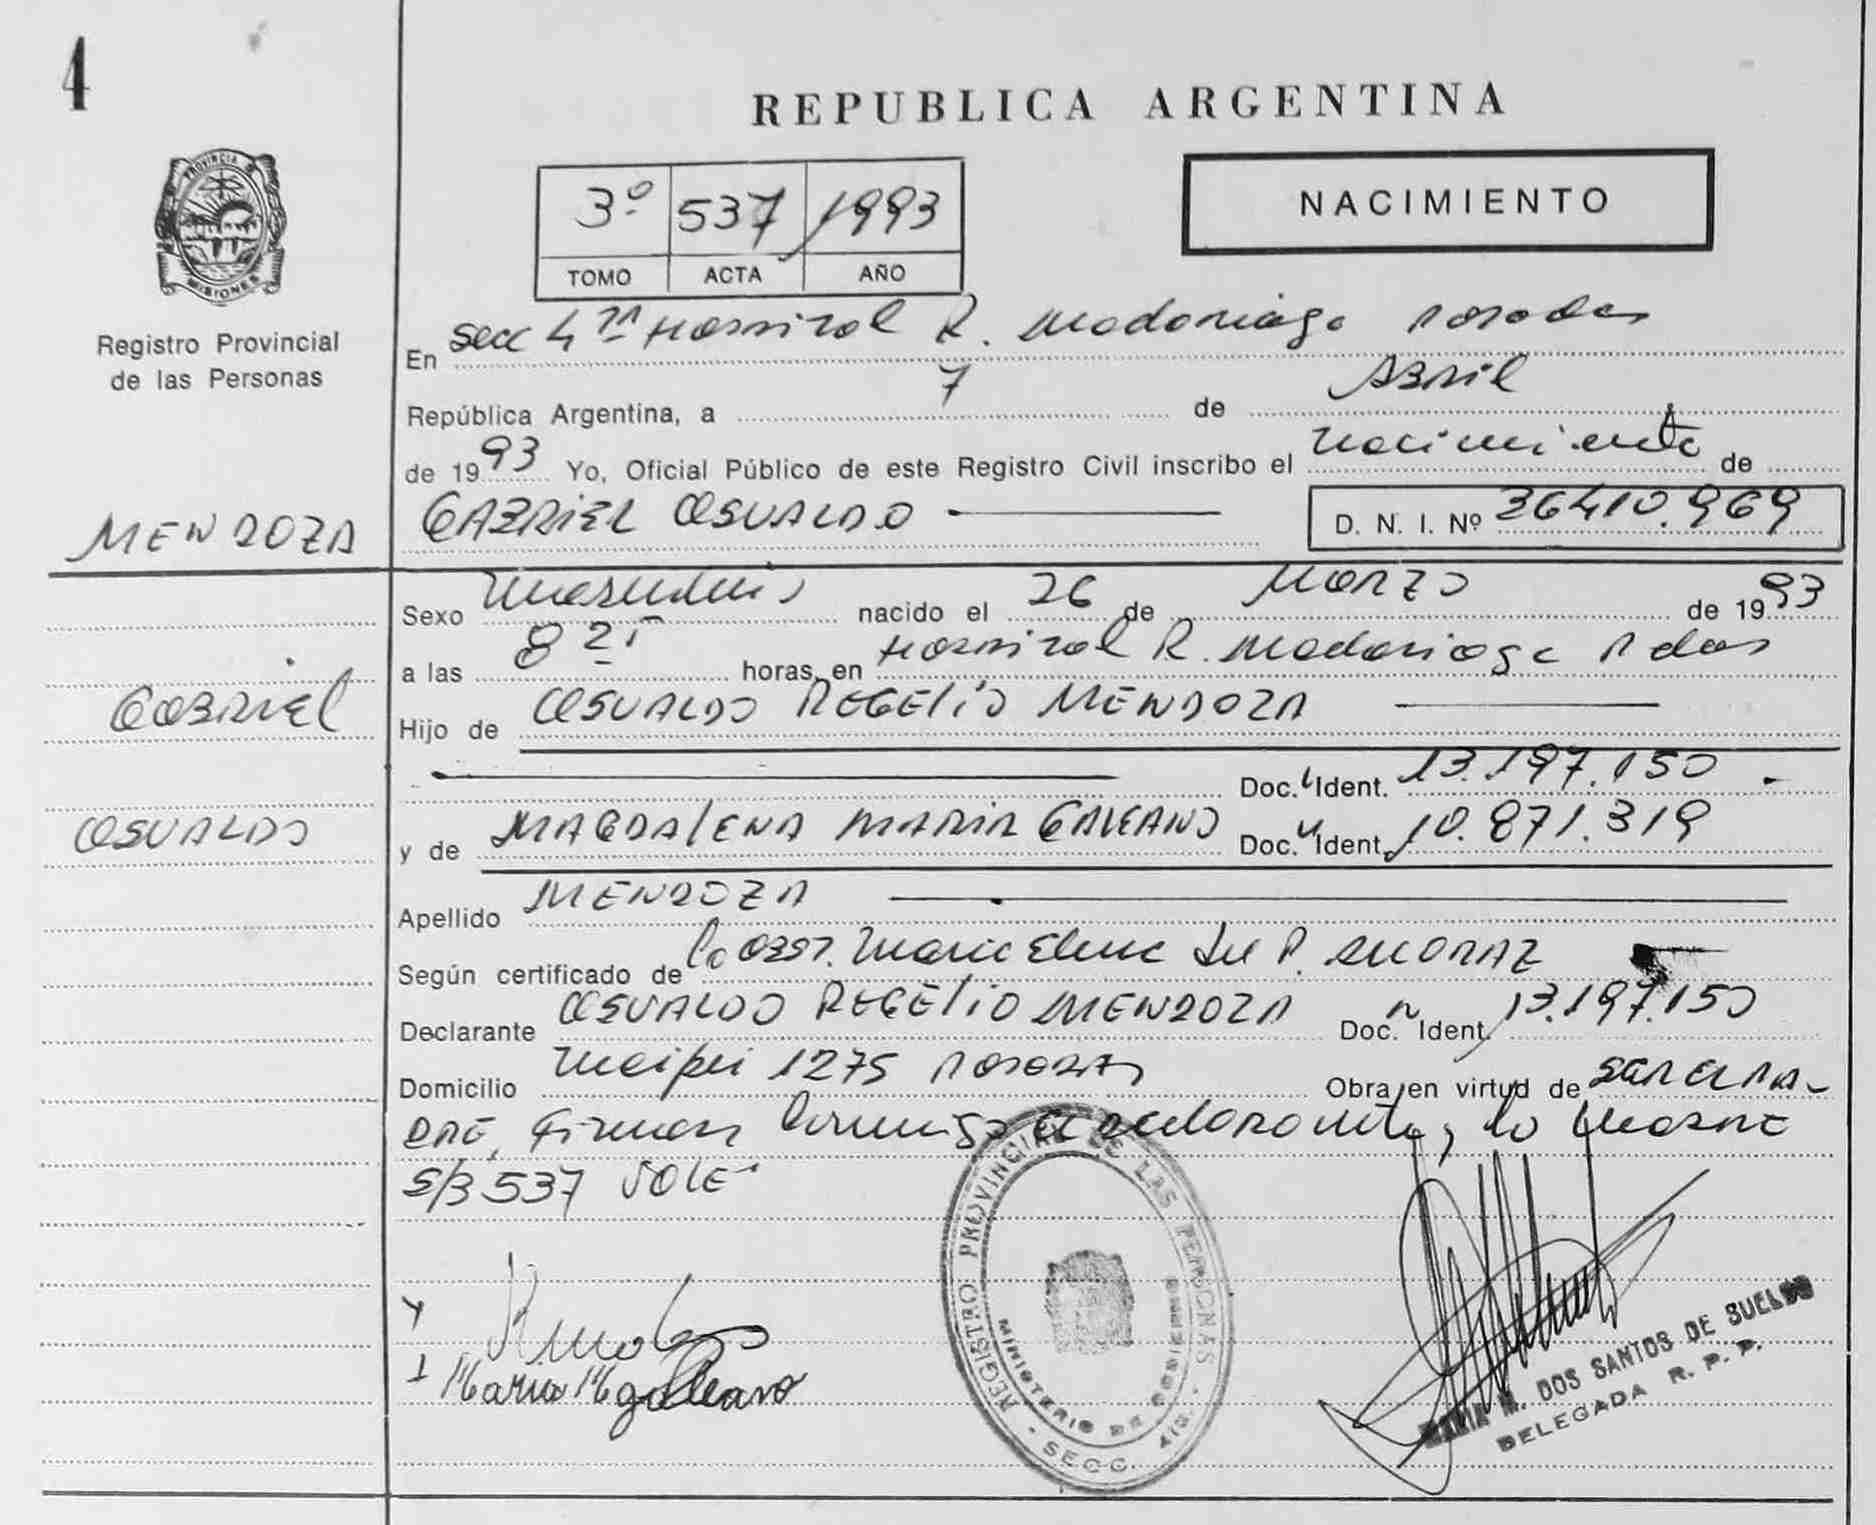 4
REPUBLICA ARGENTINA
PROVINCIA DE
MISIONES
Registro Provincial
de las Personas
3º 537 1993
TOMO ACTA AÑO
NACIMIENTO
En Secc 4ta Hospital R. Madariaga Posadas
República Argentina, a 7 de Abril
de 1993 Yo, Oficial Público de este Registro Civil inscribo el nacimiento de
MENDOZA
GABRIEL OSVALDO
D. N. I. Nº 36410.969
Sexo Masculino nacido el 26 de Marzo de 1993
a las 8 25 horas, en Hospital R. Madariaga Pdas
Gabriel
Hijo de OSVALDO ROGELIO MENDOZA
Doc. Ident. 13.197.150
OSVALDO
y de MAGDALENA MARIA GALEANO Doc. Ident. 10.871.319
Apellido MENDOZA
Según certificado de la Obst. Maria Elena
Declarante OSVALDO ROGELIO MENDOZA Doc. Ident 13.197.150
Domicilio Maipu 1275 Posadas Obra en virtud de
Firman conmigo el declarante, la Madre
S/B 537 VALE
REGISTRO PROVINCIAL DE LAS PERSONAS
MINISTERIO DE GOBIERNO
SECC.
Maria Mgaleano
DOS SANTOS DE SUELDO
DELEGADA R. P. P.